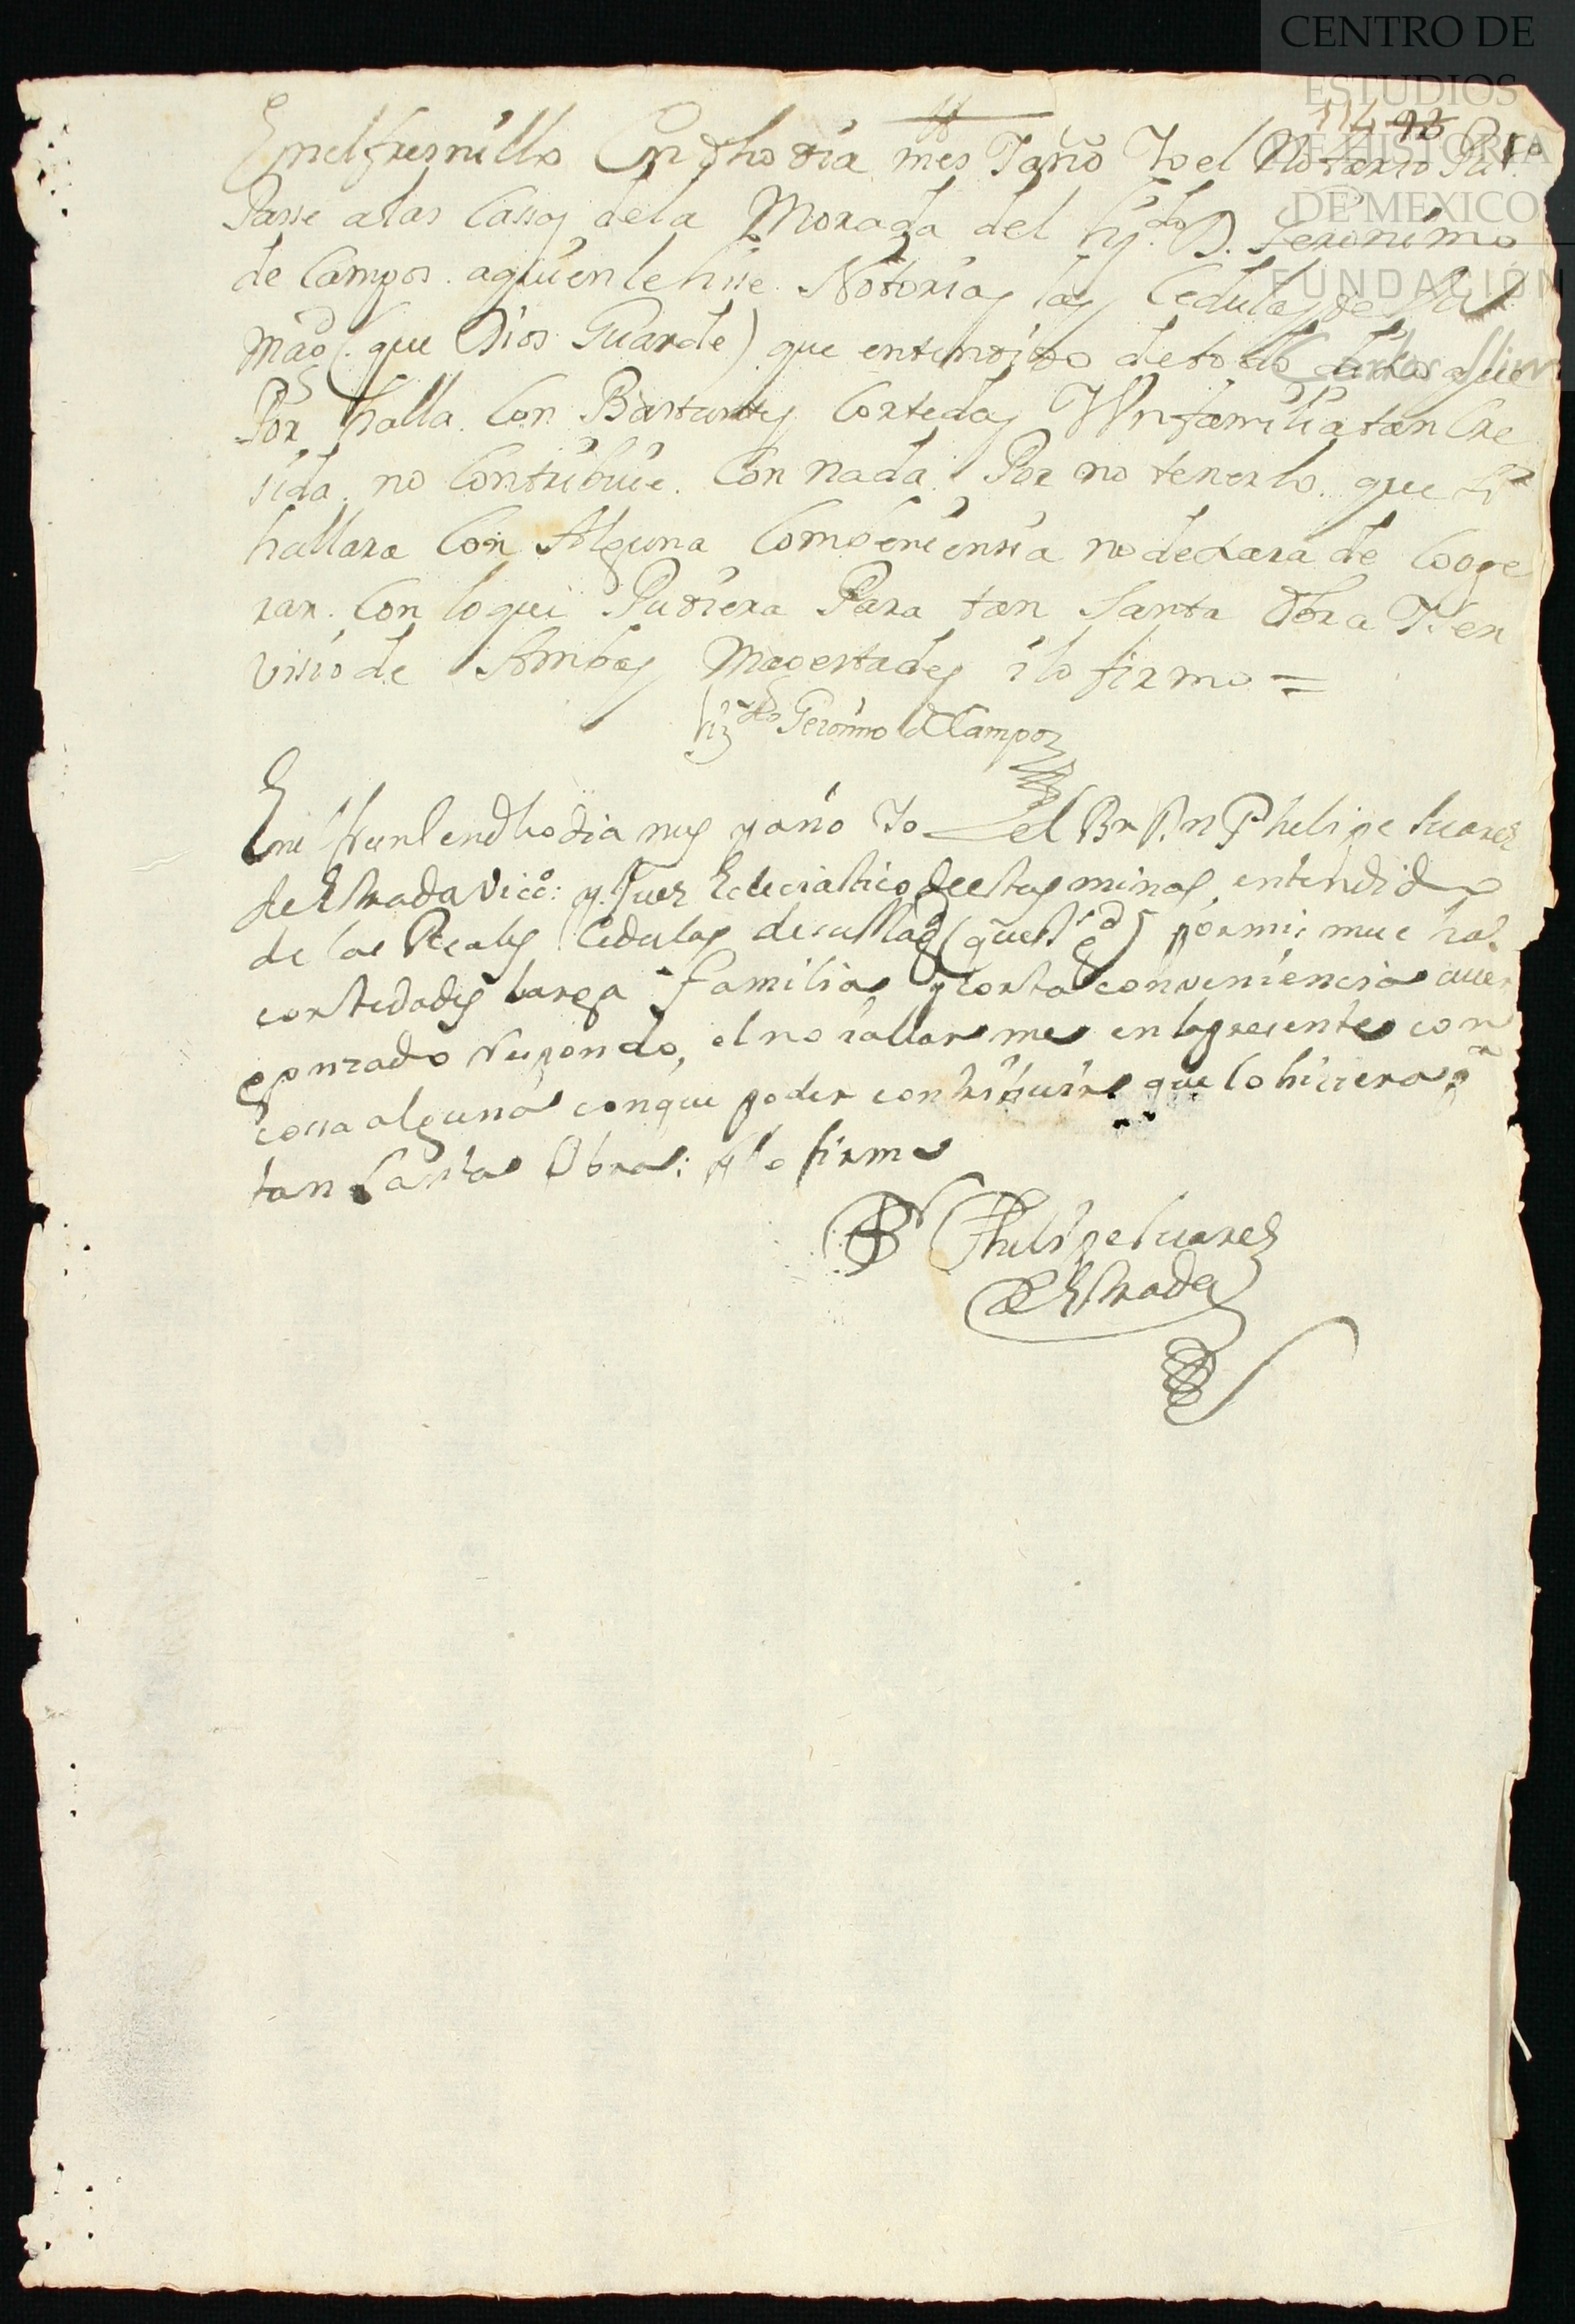 CENTRO DE
ESTUDIOS
DE HISTORIA
DE MEXICO
FUNDACIÓN
Carlos Slim
114 98
En el fresnillo En dho dia mes Y año Yo el Notario Puco
Passe a las Cassas de la Morada del Lizdo D. Geronimo
de Campos. a quien le hise Notorias las Cedulas de Su
Magd (que Dios Guarde) que entendido de todo dixo que
Por halla Con Bastantes Cortedas Y Un familia tan Cre
sida. no Contribuie. Con nada. Por no tenerlo. que si
hallara Con Alguna Combeniensia no dexara de Coope
rar. Con lo que Pudiera Para tan Santa Obra Y en
visio de Ambas Magestades i lo firmo =
Lizdo Geronimo de Campos
En el frenl en dho dia mes y año Yo el Br Dn Phelipe Suarez
de Estrada Vico: y Juez Eclesiastico de estas minas, entendido
de las Reales Cedulas de su Magd (que Ds gde) por mis muchas
cortedades larga familia y corta conveniencia auer
gonzado respondo, el no hallarme en la presente con
cossa alguna con que poder contribuir que lo hiciera pa
tan Santa Obra: y lo firme
Br Phelipe Suarez
de Estrada